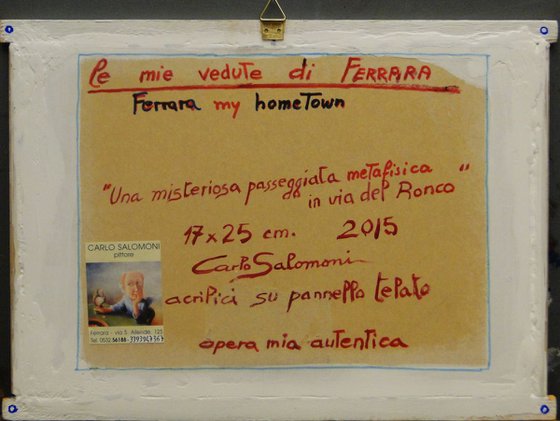 le mie vedute di FERRARA
Ferrara my homeTown
"Una misteriosa passeggiata metafisica
in via del Ronco"
17x25 cm. 2015
Carlo Salomoni
acrilici su pannello telato
opera mia autentica
CARLO SALOMONI
pittore
Ferrara - via S. Allende, 125
Tel. 0532.56188 - 3393947367